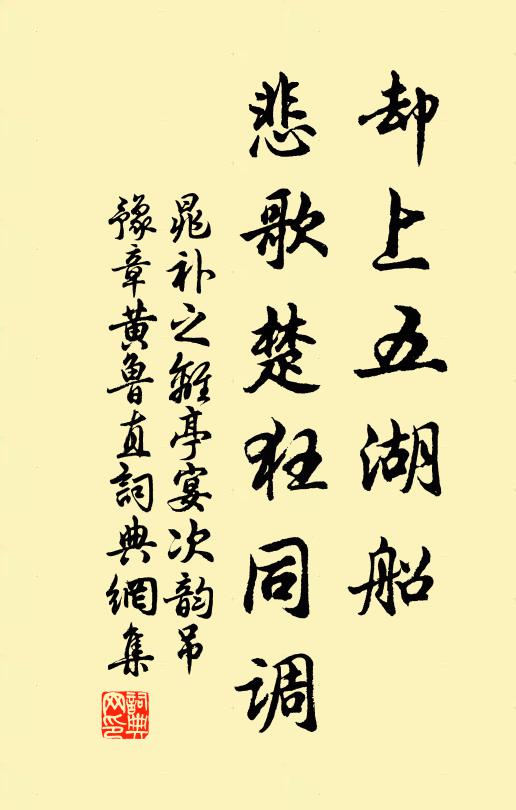 却上五湖船
悲歌楚狂同调
晁补之離亭宴次韵吊
豫章黄鲁直詞典網集
詞典网印